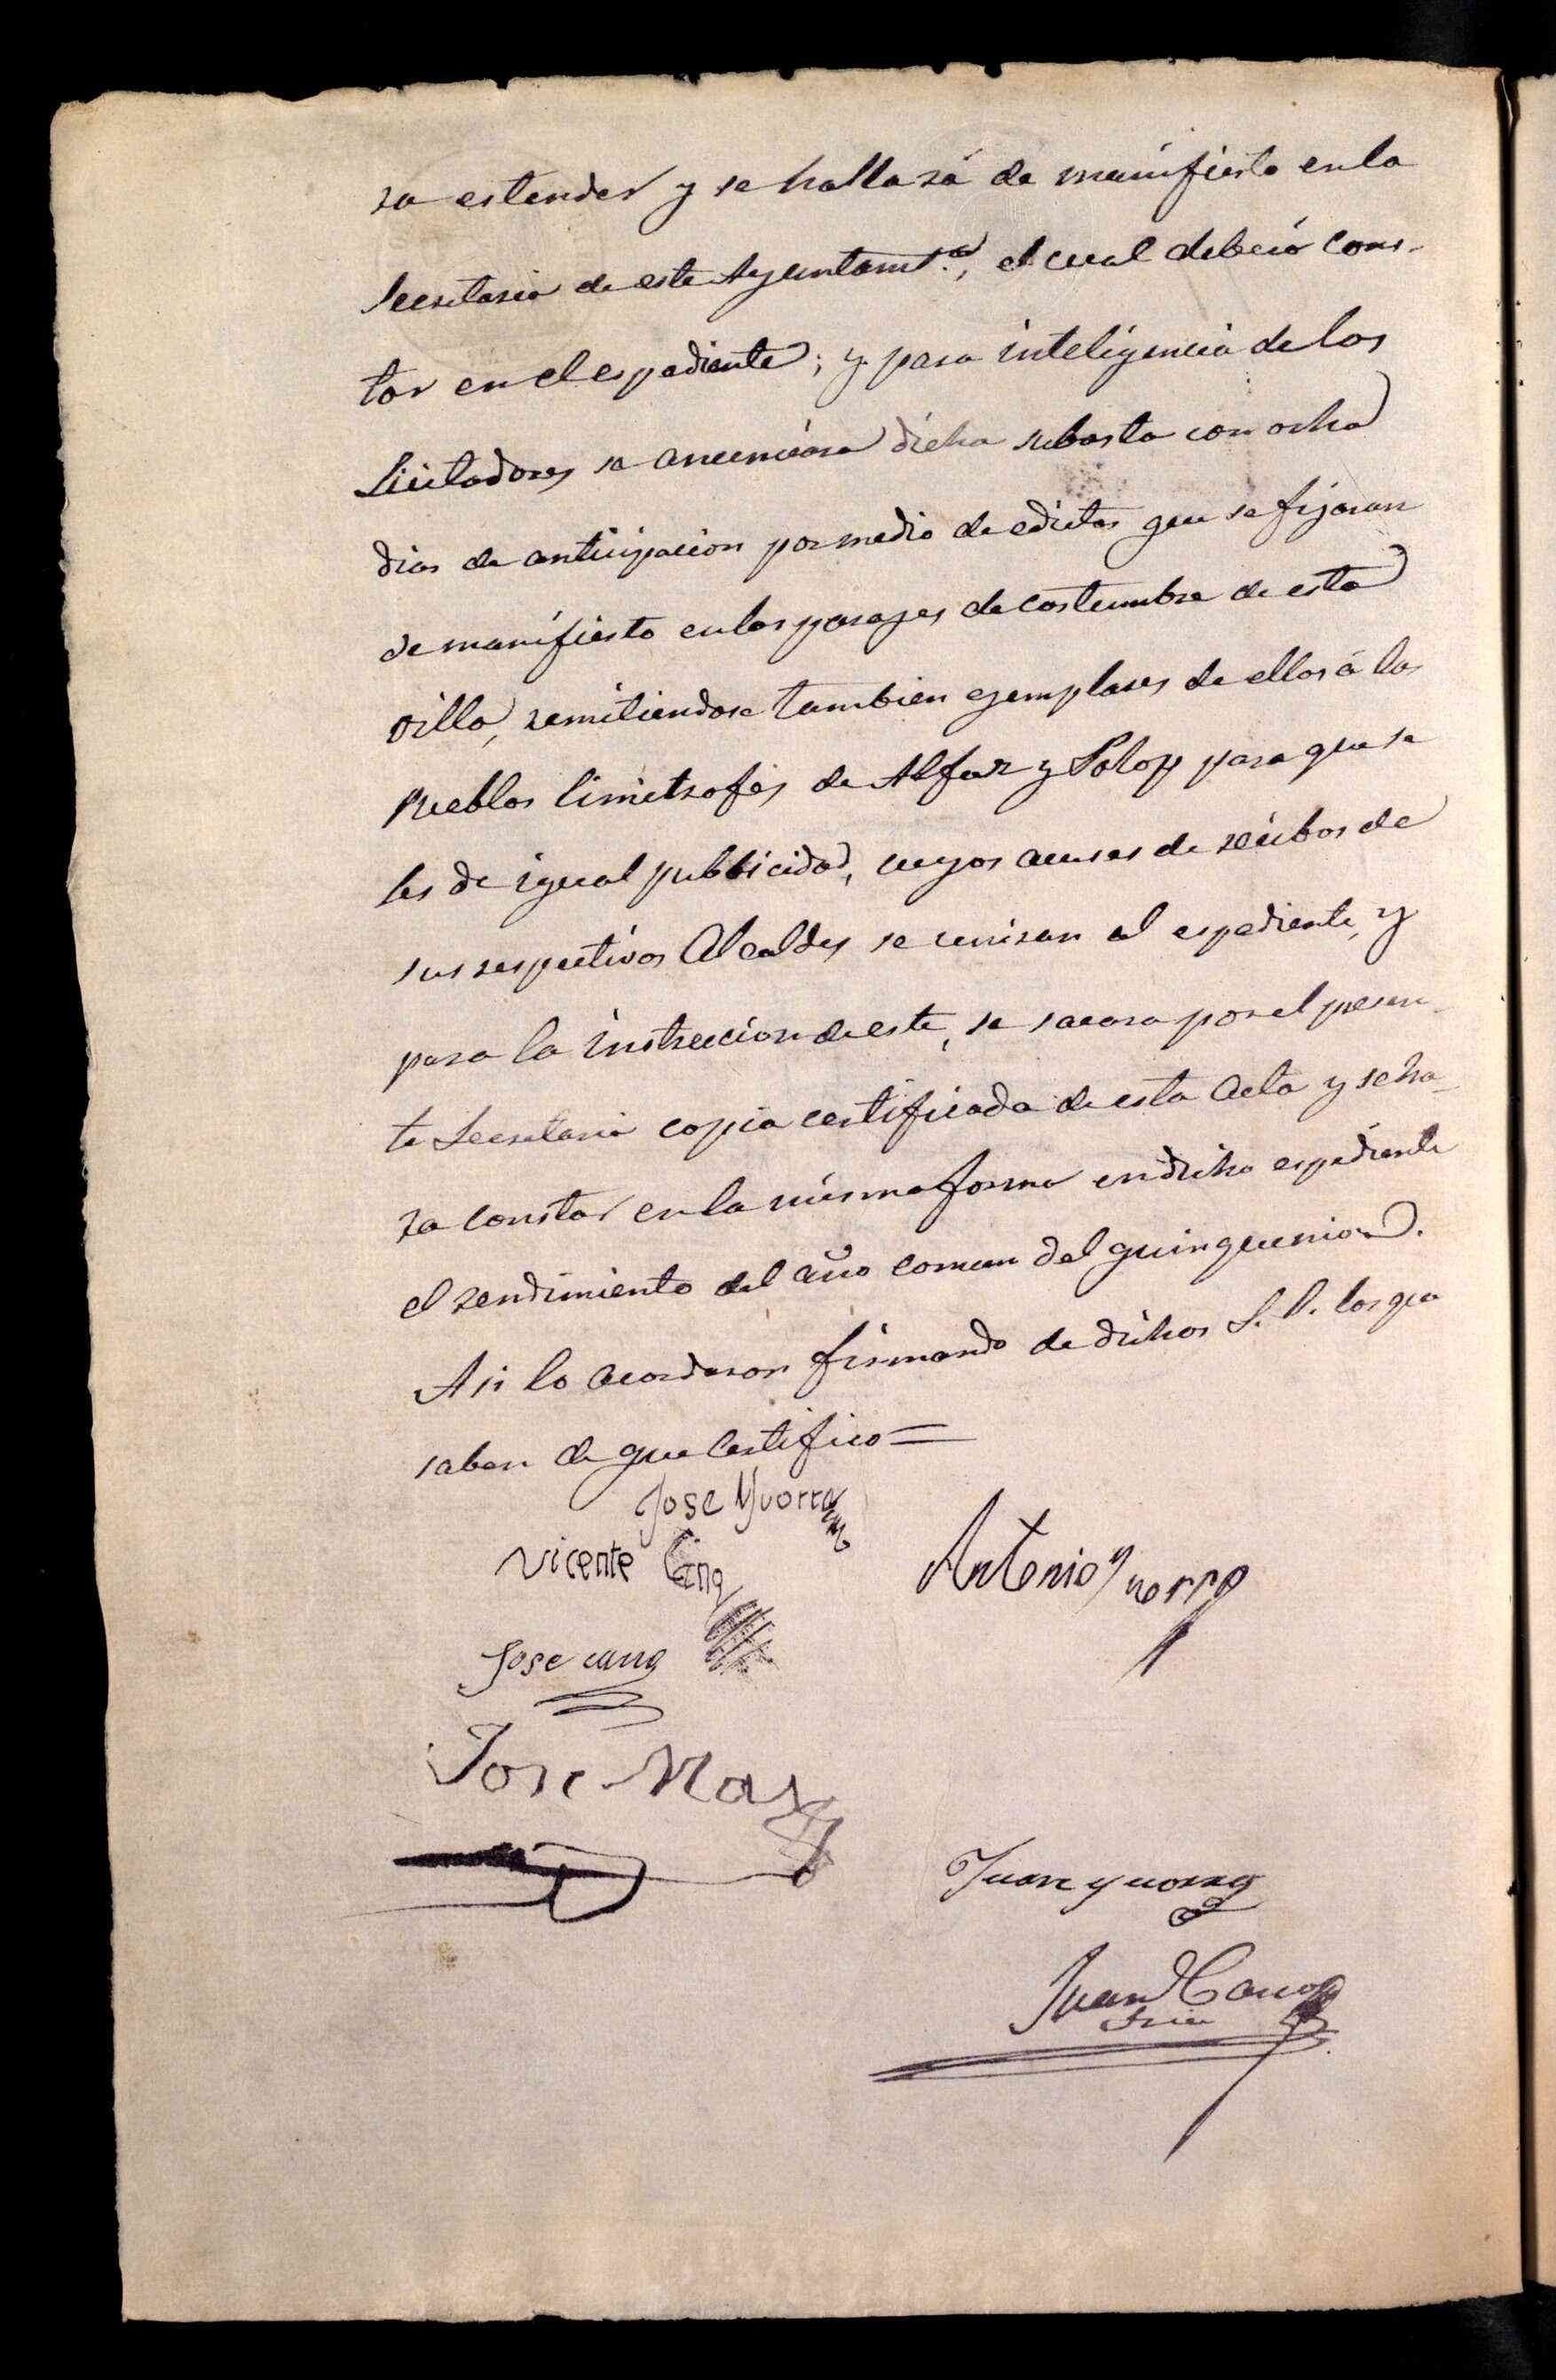 ra estender y se hallará de manifiesto en la
Secretaria de este Ayuntamt.º, el cual deberá cons-
tar en el espediente; y para inteligencia de los
Licitadores se anunciara dicha subasta con ocho
dias de anticipacion por medio de edictos que se fijaran
de manifiesto en los parages de costumbre de esta
villa, remitiendose tambien egemplares de ellos á los
Pueblos limitrofes de Alfaz y Polop para que se
les dé igual publicidad, cuyos acuses de recibos de
sus respectivos Alcaldes se uniran al espediente, y
para la instruccion de este, se sacara por el presen-
te Secretario copia certificada de esta Acta y se ha-
ra constar en la misma forma en dicho espediente
el rendimiento del año comun del quinquenio.
Asi lo acordaron firmando de dichos S. S. los que
saben de que Certifico=
Jose Yvorra
Vicente Cano
Antonio Yvorra
Jose cano
Jose Mas
Juan yvorra
Juan Cano
Srio